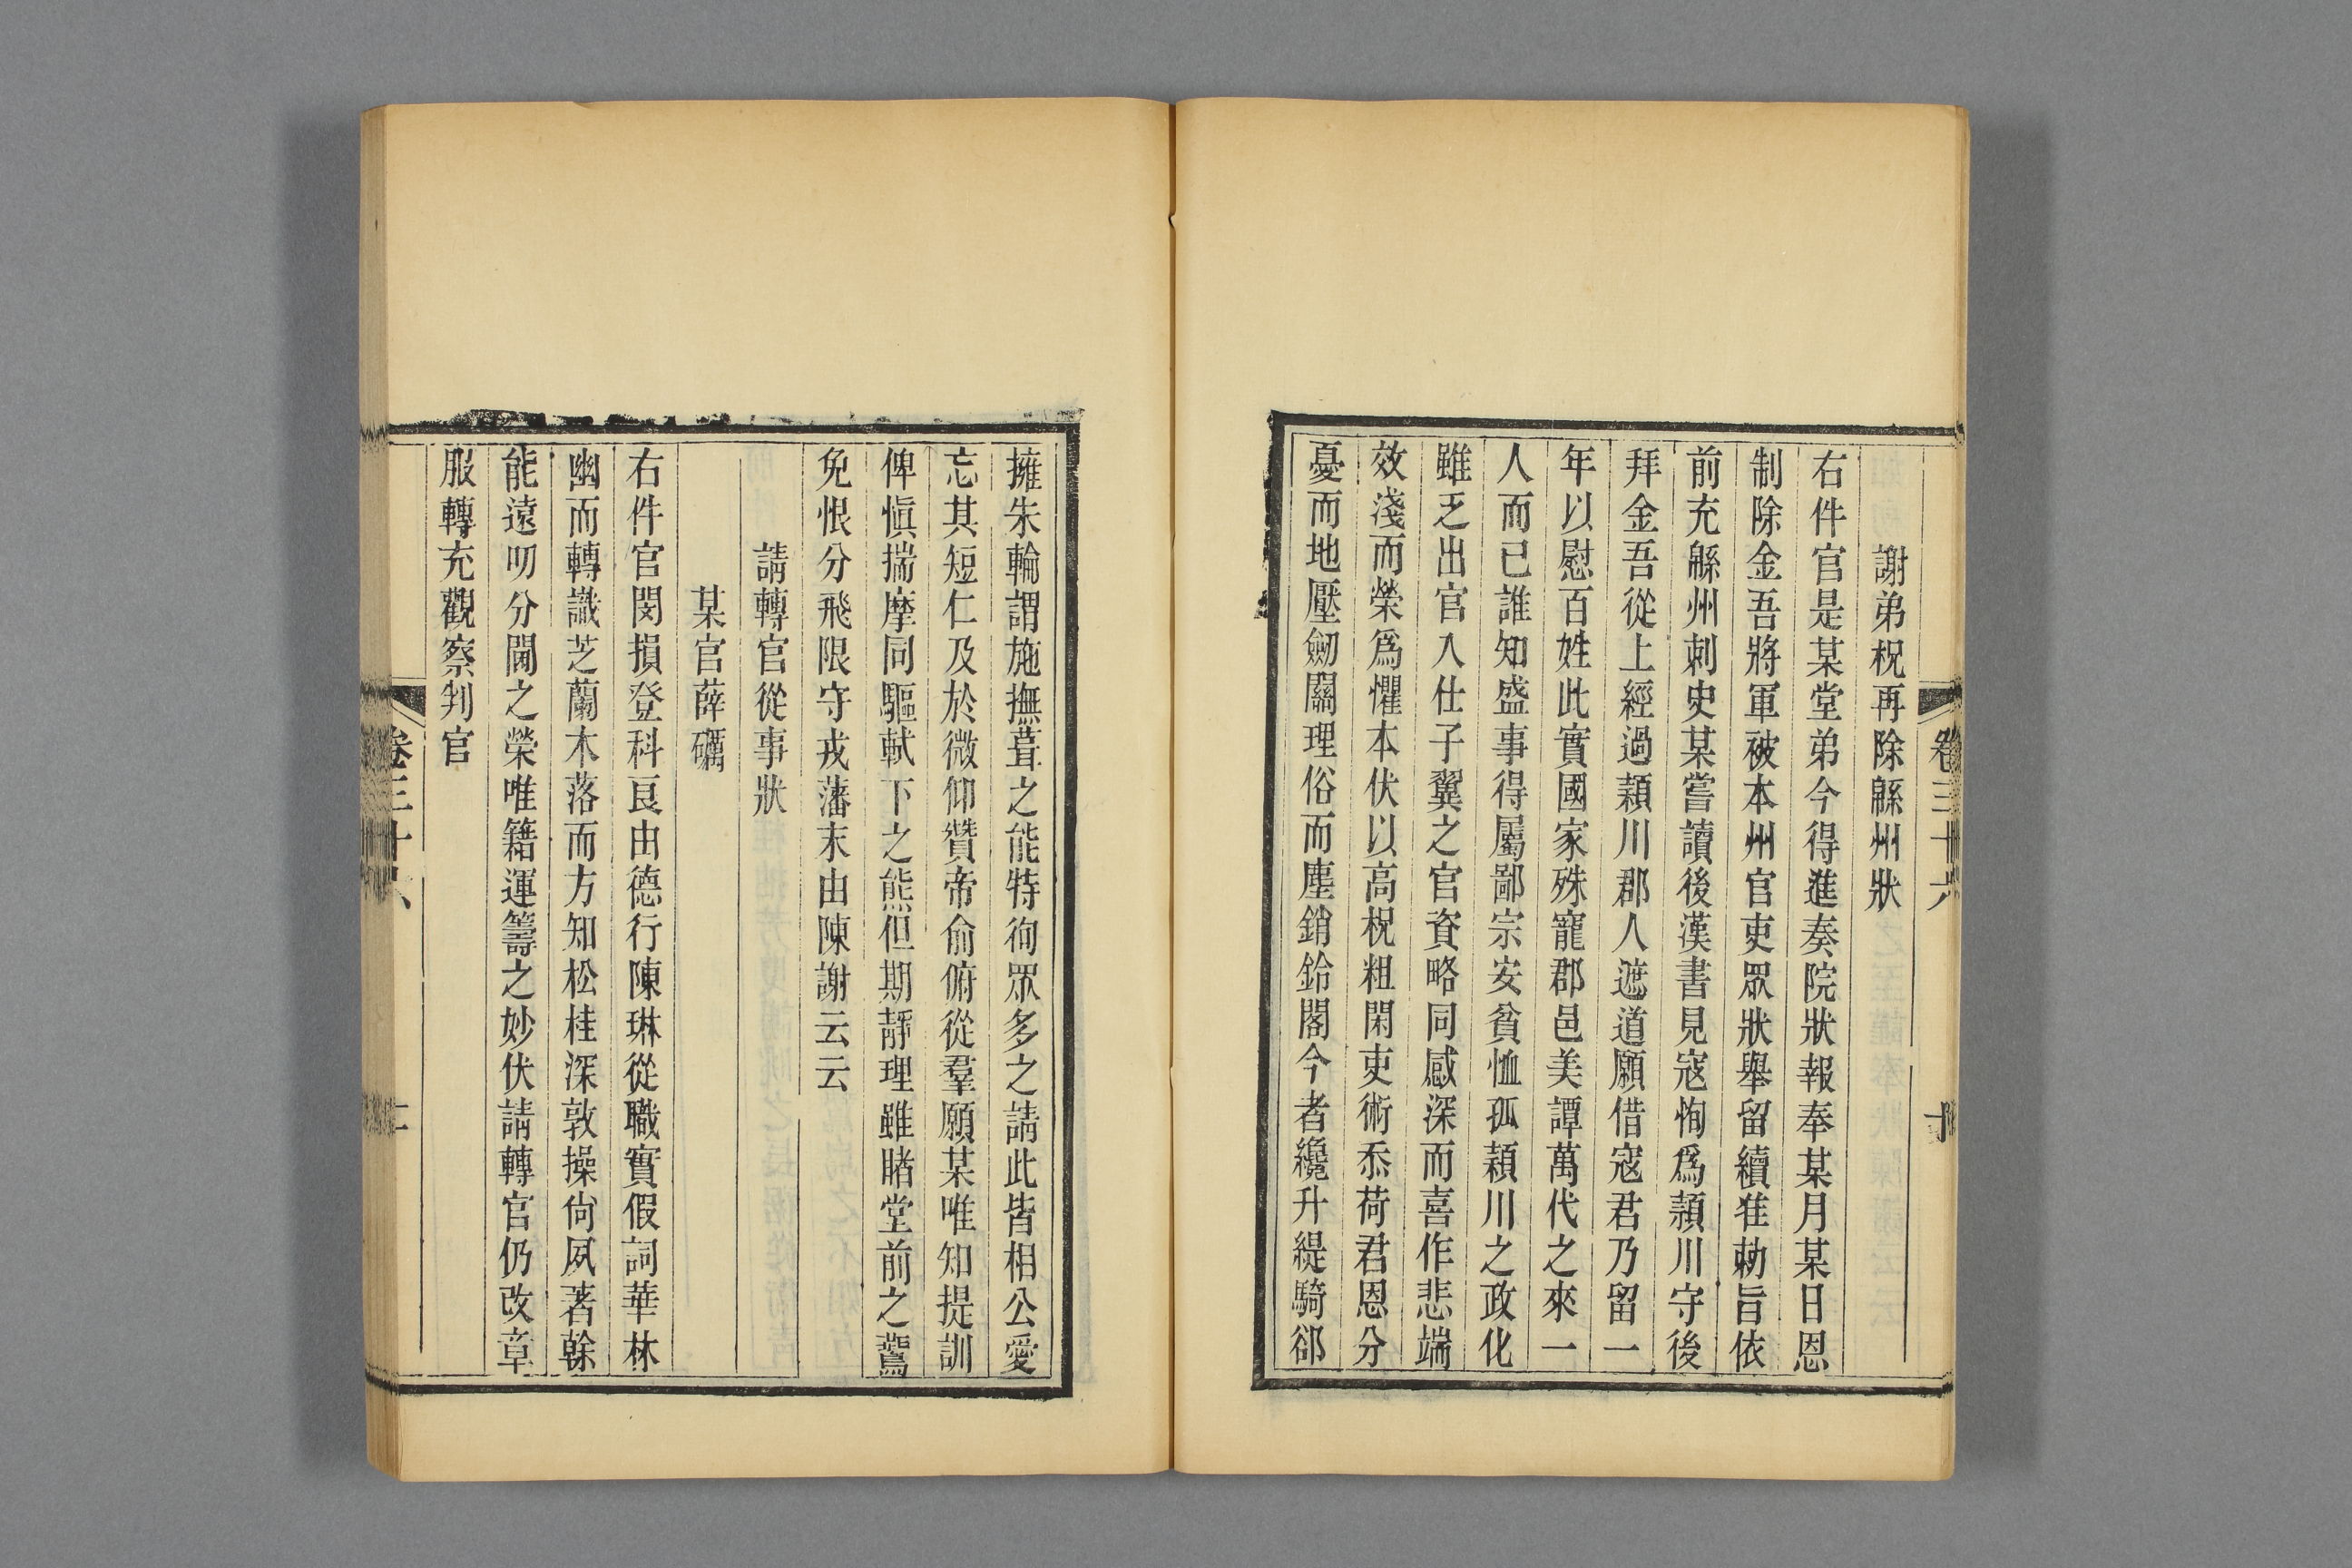 卷三十六
十
謝弟柷再除緜州狀
右件官是某堂弟今得進奏院狀報奉某月某日恩
制除金吾將軍被本州官吏眾狀舉留續准勅旨依
前充緜州刺史某嘗讀後漢書見寇恂爲潁川守後
拜金吾從上經過潁川郡人遮道願借寇君乃留一
年以慰百姓此實國家殊寵郡邑美譚萬代之來一
人而已誰知盛事得屬鄙宗安貧恤孤潁川之政化
雖乏出官入仕子翼之官資略同感深而喜作悲端
效淺而榮爲懼本伏以高柷粗閑吏術忝荷君恩分
憂而地壓劒關理俗而塵銷鈴閣今者纔升緹騎卻
擁朱輪謂施撫葺之能特徇眾多之請此皆相公愛
忘其短仁及於微仰贊帝俞俯從羣願某唯知提訓
俾愼揣摩同驅軾下之熊但期靜理雖睹堂前之鷰
免恨分飛限守戎藩末由陳謝云云
請轉官從事狀
某官薛礪
右件官閔損登科良由德行陳琳從職實假詞華林
幽而轉識芝蘭木落而方知松桂深敦操尙夙著榦
能遠叨分閫之榮唯籍運籌之妙伏請轉官仍改章
服轉充觀察判官
卷三十六
十一